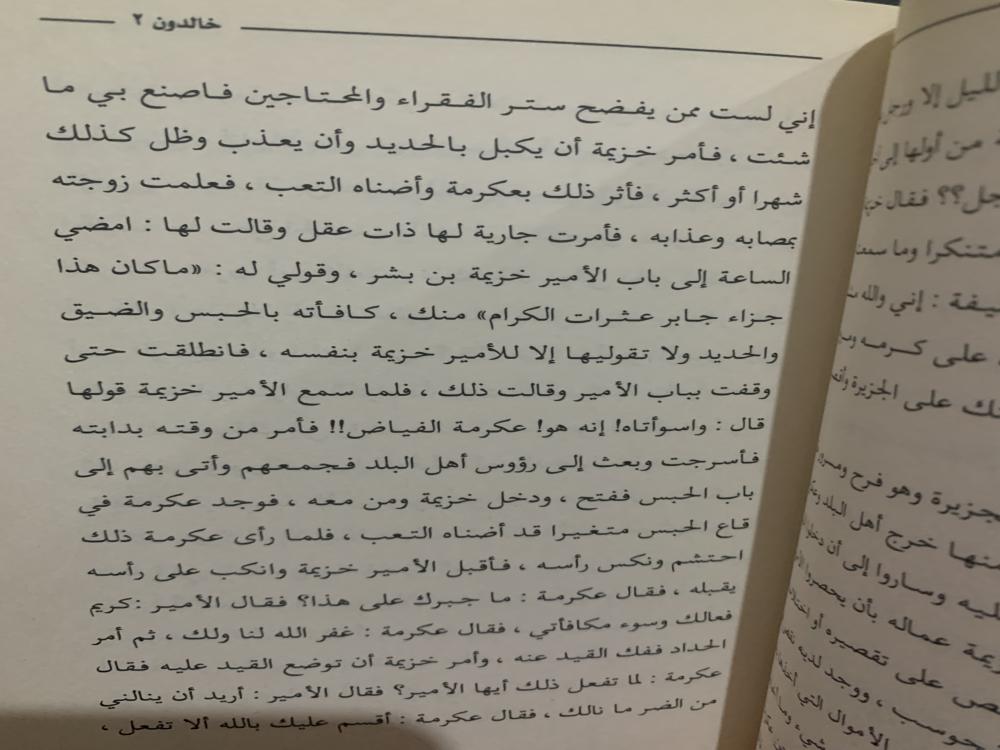 خالدون ٢
إني لست ممن يفضح ستر الفقراء والمحتاجين فاصنع بي ما
شئت ، فأمر خزيمة أن يكبل بالحديد وأن يعذب وظل كذلك
شهرا أو أكثر ، فأثر ذلك بعكرمة وأضناه التعب ، فعلمت زوجته
بمصابه وعذابه ، فأمرت جارية لها ذات عقل وقالت لها : امضي
الساعة إلى باب الأمير خزيمة بن بشر ، وقولي له : «ماكان هذا
جزاء جابر عثرات الكرام» منك ، كافأته بالحبس والضيق
والحديد ولا تقوليها إلا للأمير خزيمة بنفسه ، فانطلقت حتى
وقفت بباب الأمير وقالت ذلك ، فلما سمع الأمير خزيمة قولها
قال : واسوأتاه! إنه هو! عكرمة الفياض!! فأمر من وقته بدابته
فأسرجت وبعث إلى رؤوس أهل البلد فجمعهم وأتى بهم إلى
باب الحبس ففتح ، ودخل خزيمة ومن معه ، فوجد عكرمة في
قاع الحبس متغيرا قد أضناه التعب ، فلما رأى عكرمة ذلك
احتشم ونكس رأسه ، فأقبل الأمير خزيمة وانكب على رأسه
يقبله ، فقال عكرمة : ما جبرك على هذا؟ فقال الأمير :كريم
فعالك وسوء مكافأتي ، فقال عكرمة : غفر الله لنا ولك ، ثم أمر
الحداد ففك القيد عنه ، وأمر خزيمة أن توضع القيد عليه فقال
عكرمة : لما تفعل ذلك أيها الأمير؟ فقال الأمير : أريد أن ينالني
من الضر ما نالك ، فقال عكرمة : أقسم عليك بالله ألا تفعل ،
لليل إلا
من أولها إلى
جل؟؟ فقال
متنكرا وما
يفة : إني والله
على كرمه
ك على الجزيرة
جزيرة وهو فرح
منها خرج أهل البلد
ليه وساروا إلى أن
يمة عماله بأن يحصروا
ص على تقصيره أو
حوسب ، ووجد لديه
الأموال التي